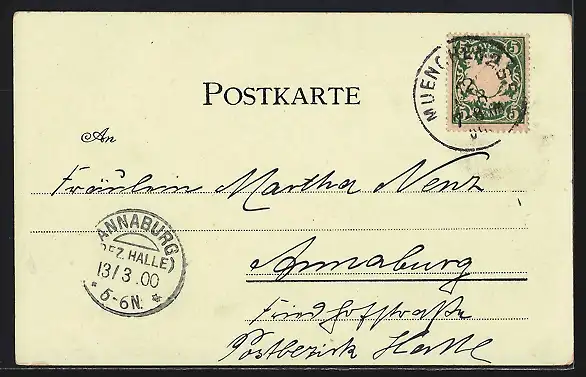 MUENCHEN
5
5
5
POSTKARTE
An
Fräulein Martha Nenz
ANNABURG
(BEZ. HALLE)
13/3.00
* 5-6N. *
Annaburg
Friedhofstraße
Postbezirk Halle